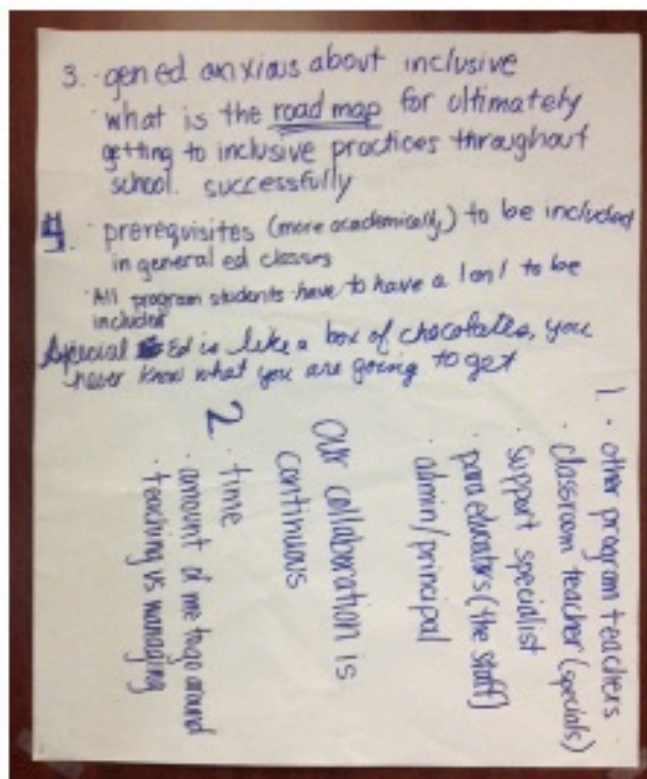 3. · gen ed anxious about inclusive
· what is the road map for ultimately
getting to inclusive practices throughout
school. successfully
4. · prerequisites (more academically) to be included
in general ed classes
· All program students have to have a 1 on 1 to be
included
Special Ed is like a box of chocolates, you
never know what you are going to get
1. · other program teachers
· classroom teacher (specials)
· support specialist
· para educators (the staff)
· admin/principal
Our collaboration is
continuous
2. · time
· amount of me to go around
· teaching vs managing